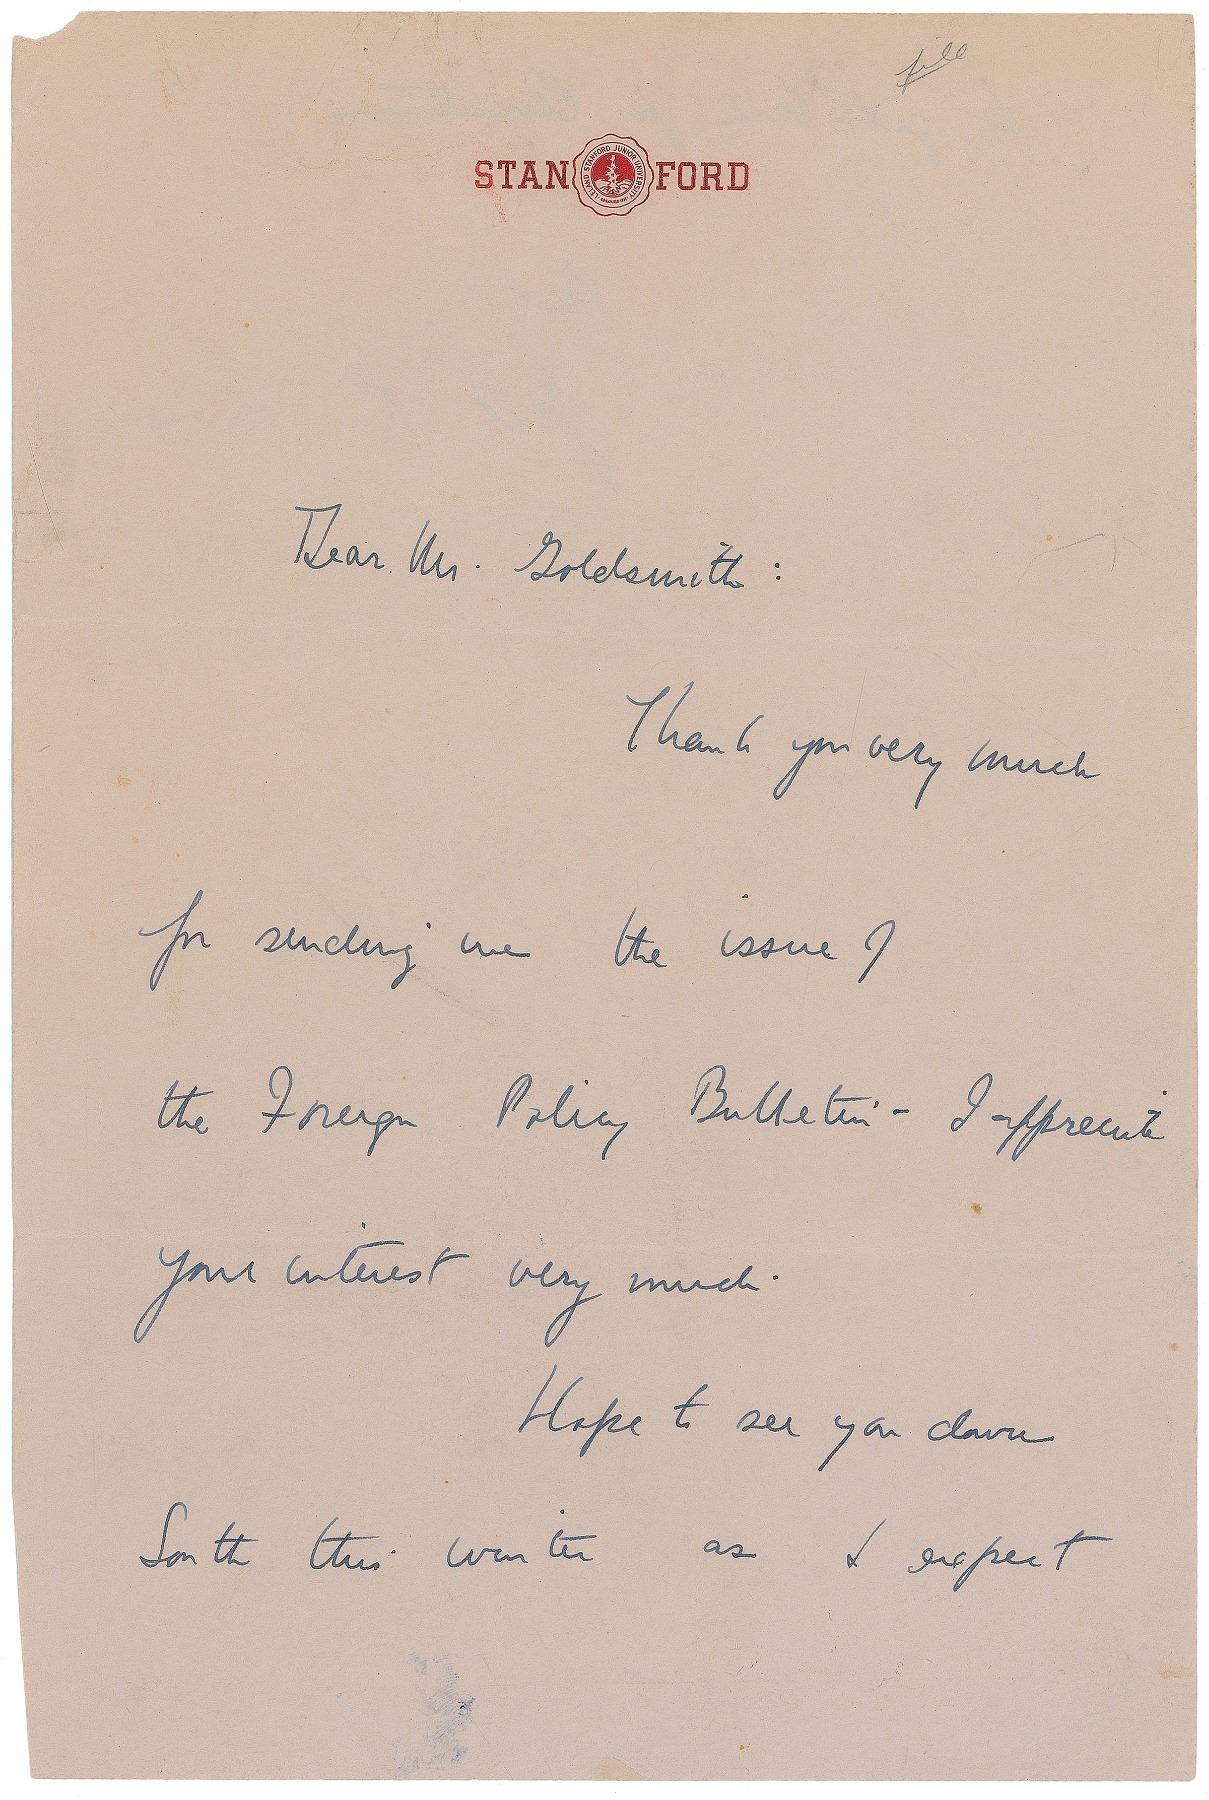 file
STANFORD
LELAND STANFORD JUNIOR UNIVERSITY
Dear Mr. Goldsmith:
Thank you very much
for sending me the issue of
the Foreign Policy Bulletin - I appreciate
your interest very much.
Hope to see you down
South this winter as I expect